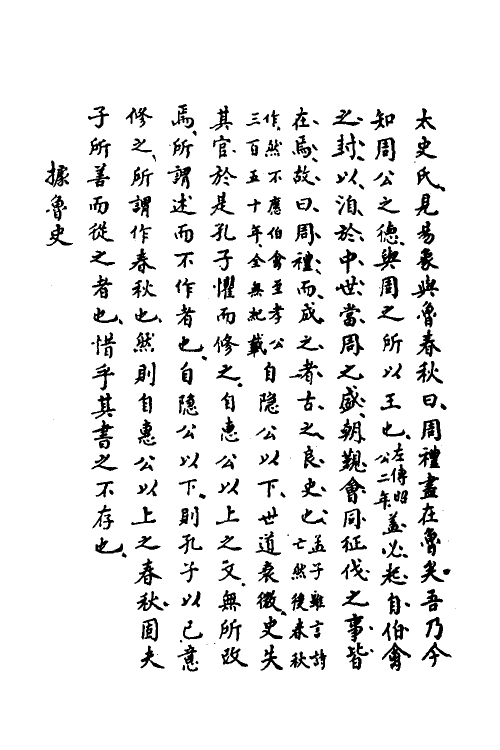 太史氏、見易象與魯春秋曰、周禮盡在魯矣。吾乃今
知周公之德、與周之所以王也、左傳昭公二年蓋必起自伯禽
之封、以洎於中世、當周之盛、朝覲會同征伐之事、皆
在焉、故曰周禮、而成之者古之良史也、孟子雖言詩亡然後春秋
作、然不應伯禽至孝公三百五十年、全無紀載自隱公以下、世道衰微、史失
其官、於是孔子懼而修之、自惠公以上之文、無所改
焉、所謂述而不作者也、自隱公以下、則孔子以己意
修之、所謂作春秋也、然則自惠公以上之春秋、固夫
子所善而從之者也、惜乎其書之不存也、
據魯史